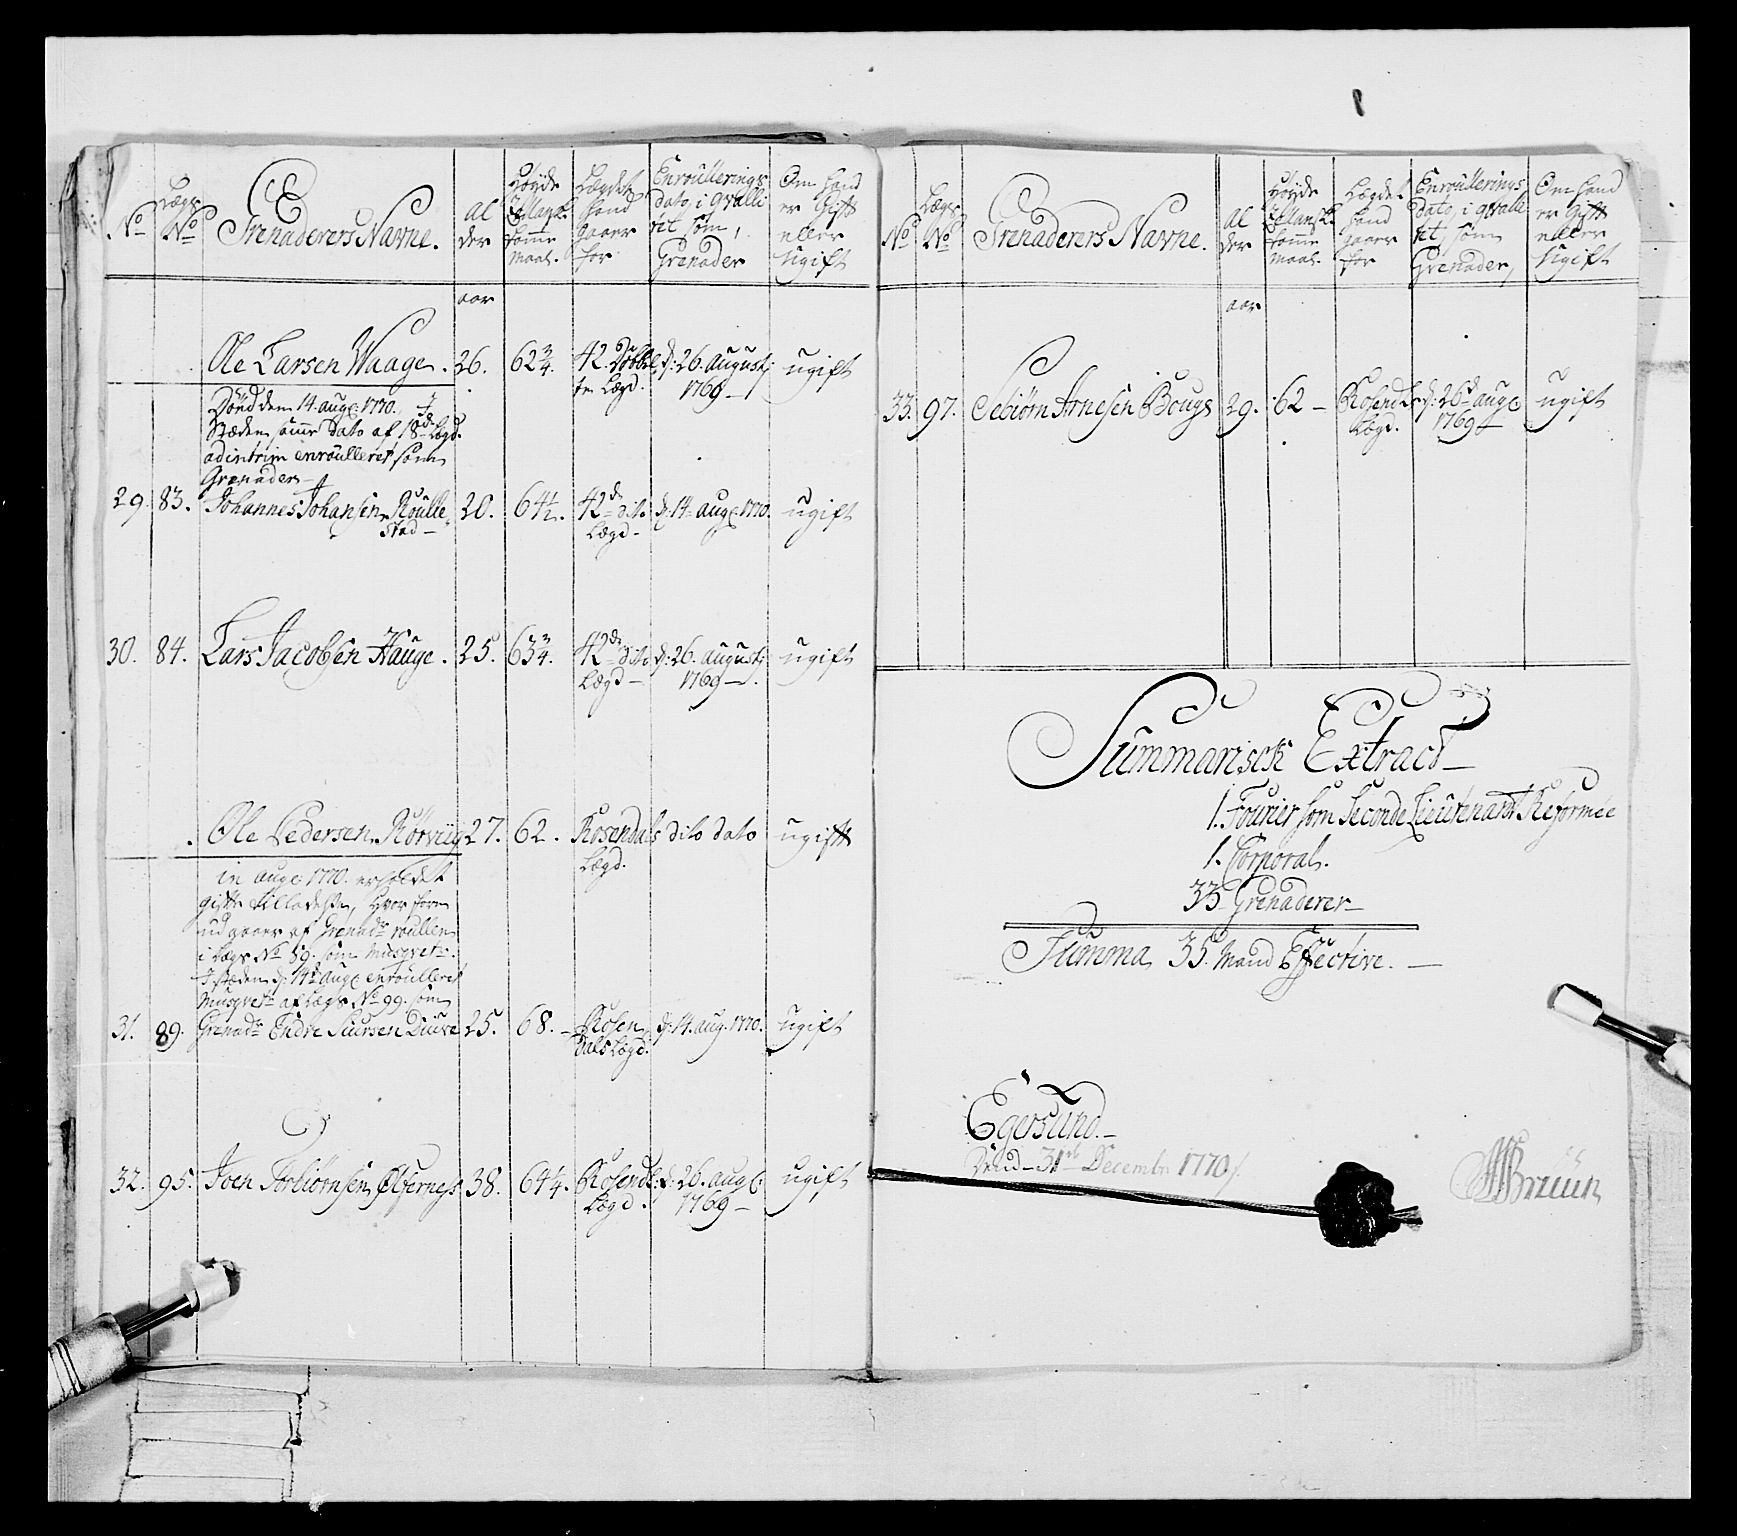 No
Lægs No
Grenaderers Navne.
Al der
Høyde
Tomme maal.
Lægdet hand gaaer for
Enroullerings dato, i qvalli tet som, Grenader
Om hand er Gift eller Ugift
aar
Ole Larsen Waage. 26. 62 3/4. 42. Dobbel te Lægd. d: 26. Augustj 1769 ugift
Død den 14. augt: 1770. I
Stæden samme dato af 18de Lægd.
ad intrim enroulleret som
Grenader
29. 83. Johannes Johansen Roulle stad 20. 64 1/2. 42de dito Lægd d: 14. augt: 1770. ugift
30. 84. Lars Jacobsen Hauge. 25. 63 3/4. 42de dito Lægd d: 26. augustj 1769 ugift
Ole Pedersen Rørviig 27. 62. Rosendals Lægd. dito dato ugift
in augt: 1770. erholdet
gifte tilladelse, hvor for
udgaaer af Grenadr roullen
i Lægs No 59. som Musqvetr.
I stæden d: 14de augt: enroulleret
Musqvetr af Lægs No 99. som
31. 89. Grenadr Endre Siursen Diure 25. 68. Rosen dals Lægd. d: 14. aug. 1770. ugift
32. 95. Joen Torbiørnsen Ølferness 38. 64 1/4. Rosends: Lægd. d: 26. augt: 1769 ugift
No
Lægs No
Grenaderers Navne.
Al der
Høyde
Tomme maal.
Lægdet hand gaaer for
Enroullerings dato, i qvalli tet, som Grenader,
Om hand er Gift eller Ugift
aar
33. 97. Sebiørn Arnesen Bougs 29. 62 Rosends Lægd. d: 26de augt: 1769 ugift
Summarisch Extract
1. Fourier som Seconde Lieutenant Reformée
1. Corporal.
33 Grenaderer
Summa 35. Mand Effective.
Egersund
Dend 31te Decembr 1770
Bruun